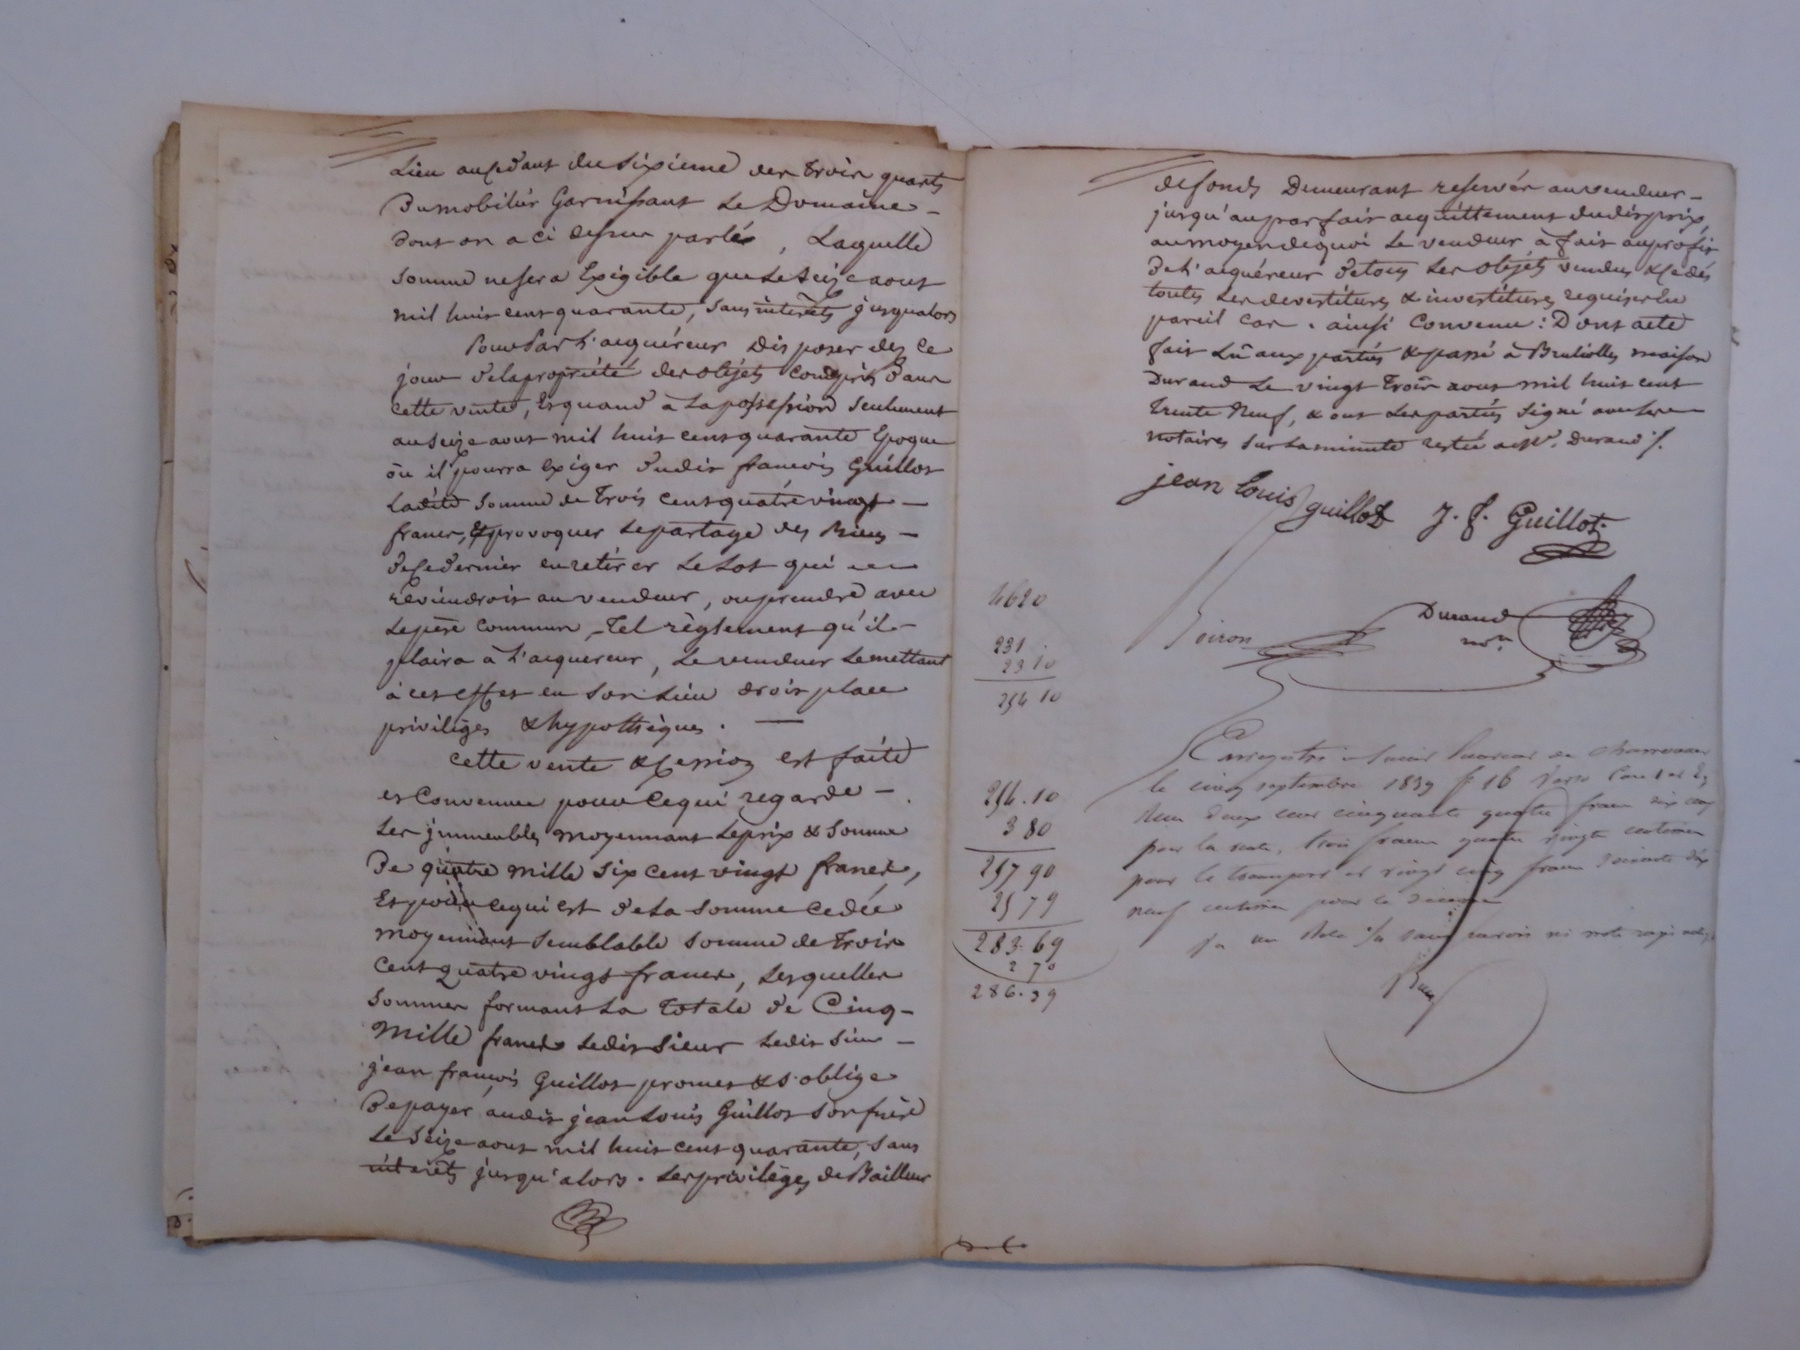 Lieu audedant du sixieme des trois quarts
Du mobilier Garnissant Le Domaine
dont on a ci dessus parlé, Laquelle
somme ne sera Exigible que Le seize aout
mil huit cent quarante, sans intérêts jusqualors
Pourra L'acquéreur disposer des ce
jour de la propriété des objets compris dans
cette vente, Et quand à La possession seulement
au seize aout mil huit cent quarante Epoque
où il pourra Exiger dudit francois Guillot
Ladite somme de Trois cent quatre vingt
francs, & provoquer Le partage des Biens
de Ce dernier en retirer Le Lot qui
reviendroit au vendeur, ou prendre avec
Le père commun, Tel règlement qu'il
plaira à L'acquereur, Le vendeur Le mettant
à cet effet en son Lieu droit place
privilèges & hypothèques.
Cette vente & Cession est faite
et Convenue pour Ce qui regarde
Les jmmeubles moyennant Le prix & Somme
De quatre mille six cent vingt francs,
Et pour ce qui est de La somme cedée
moyennant semblable somme de trois
Cent quatre vingt francs, Lesquelles
Sommes formant La Totale de Cinq
Mille francs Ledit sieur Ledit sieur
jean françois Guillot promet & s'oblige
De payer audit jean Louis Guillot son frère
Le seize aout mil huit cent quarante, sans
intérêts jusqu'alors. Les privilèges de Bailleur
de fonds Demeurant reservés au vendeur
jusqu'au parfait acquittement dudit prix,
au moyen de quoi Le vendeur a fait au profit
De L'acquéreur de tous Les objets vendus & Cedés
toutes Les devestitures & investitures requises En
pareil Cas. ainsi Convenu : Dont acte
fait Lû aux parties & passé à Brulioles maison
Durand Le vingt trois aout mil huit cent
trente Neuf, & ont Les parties signé avec Les
notaires sur La minute restée a Mr. Durand ./.
jean Louis guillot J. f. Guillot
4620
Durand
Boiron
nore
231
23 10
254 10
Enregistré
le cinq septembre 1839 f 16 Verso
254.10
Reçu deux cent cinquante quatre francs dix cent
3 80
pour la vente, trois francs quatre vingts centimes
257 90
pour le transport et vingt cinq francs soixante dix
25 79
neuf centimes pour le decime
283.69
2 70
286.39